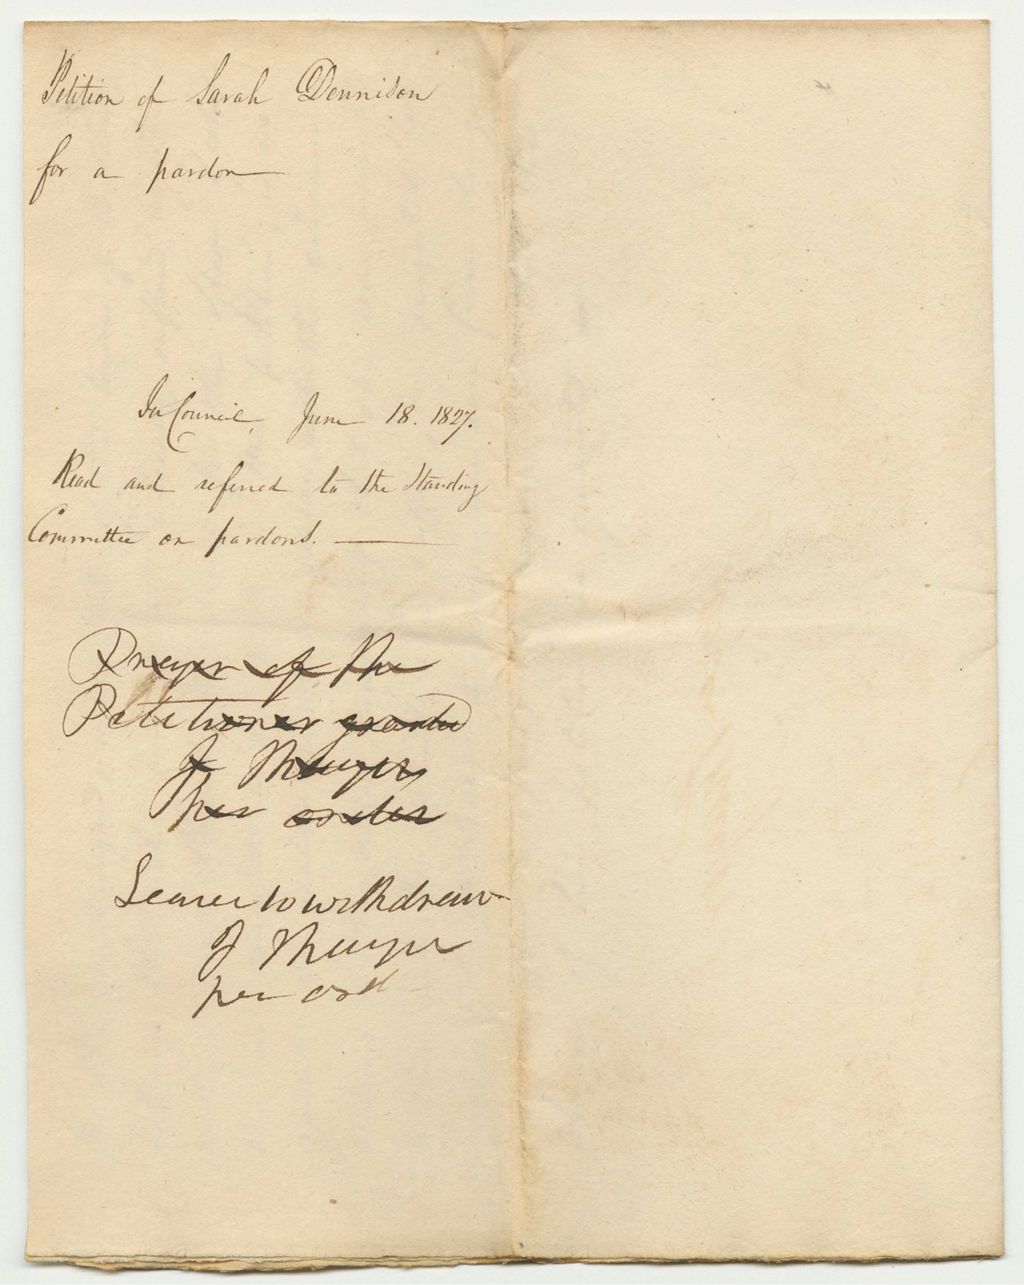 Petition of Sarah Dennison
for a pardon
In Council, June 18. 1827.
Read and referred to the Standing
Committee on pardons.
Prayer of the
Petitioner granted
J Thayer
per order
Leave to withdraw
J Thayer
per ord